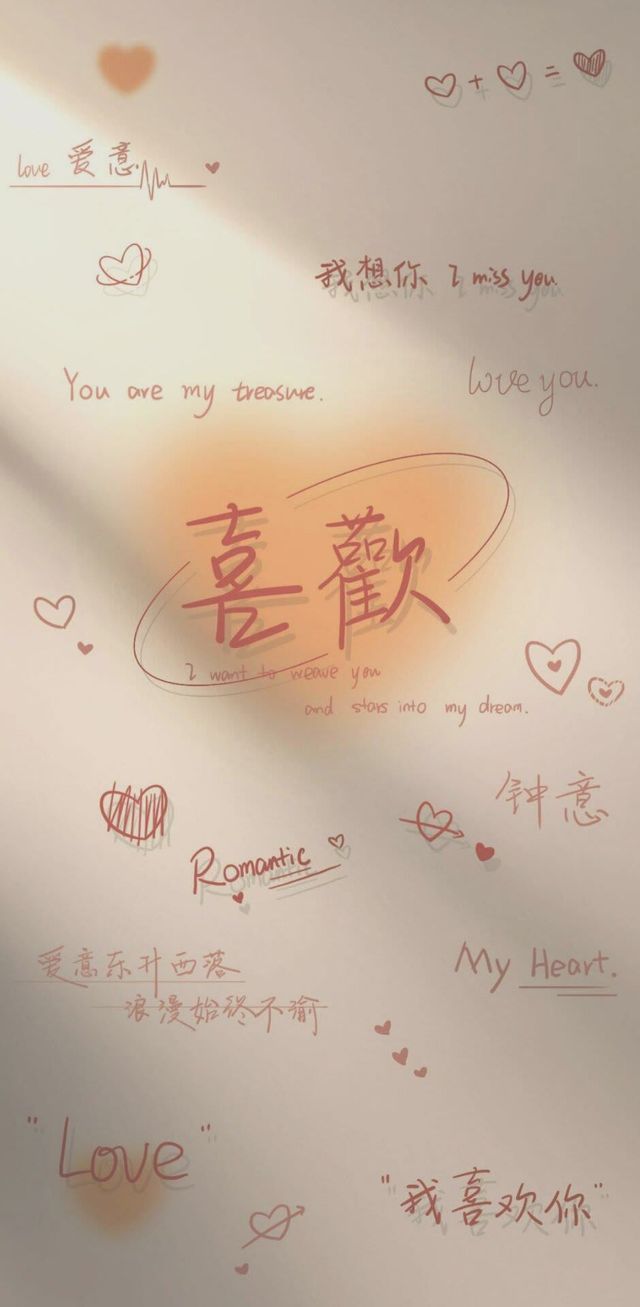 + =
love 爱意
我想你 I miss you
You are my treasure.
love you.
喜歡
I want to weave you
and stars into my dream.
钟意
Romantic
爱意东升西落
浪漫始终不渝
My Heart.
"Love"
"我喜欢你"